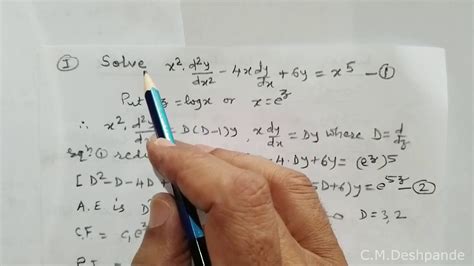 ① Solve x². d²y/dx² - 4x dy/dx + 6y = x⁵ —①
Put z = logx or x = e^z
∴ x². d²y/ = D(D-1)y, x dy/dx = Dy where D = d/dz
eqⁿ. ① = 4.Dy+6y = (e^z)⁵
[D²-D-4D 5D+6)y = e^5z —②
A.E is D D = 3, 2
C.F. = c₁e^3z
P.I
C.M.Deshpande